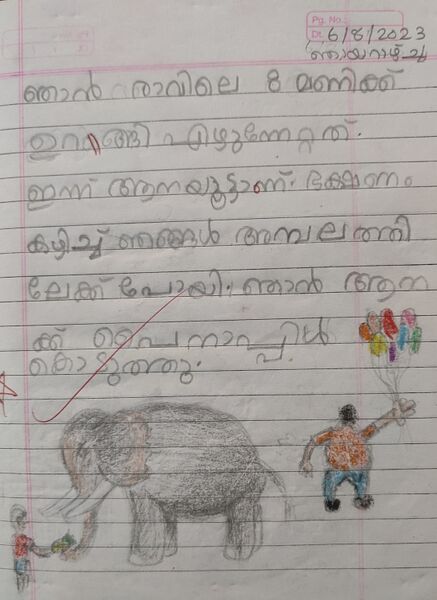 Pg. No.:
Dt. 6/8/2023
ഞായറാഴ്ച
ഞാൻ രാവിലെ 8 മണിക്ക്
എഴുന്നേറ്റത്.
ഇന്ന് ആനയൂട്ടാണ്. ഭക്ഷണം
കഴിച്ച് ഞങ്ങൾ അമ്പലത്തി
ലേക്ക് പോയി. ഞാൻ ആന
ക്ക് പൈനാപ്പിൾ
കൊടുത്തു.